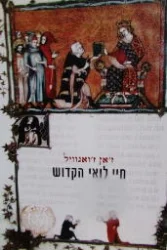 ז'אן ז'ואנוויל
חיי לואי הקדוש